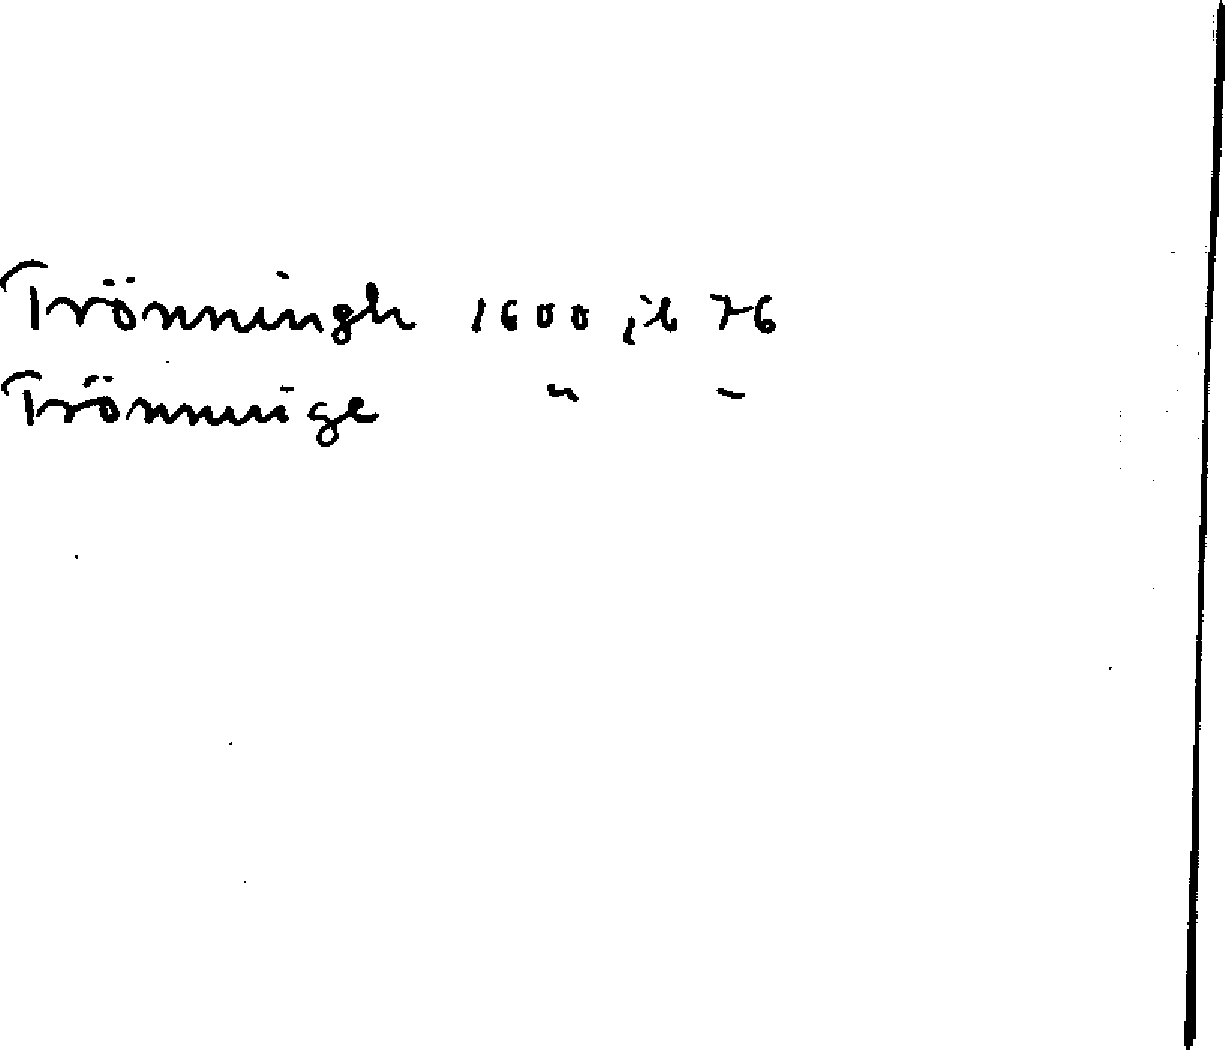 Trönningh 1600 jb 76
Trönninge " "